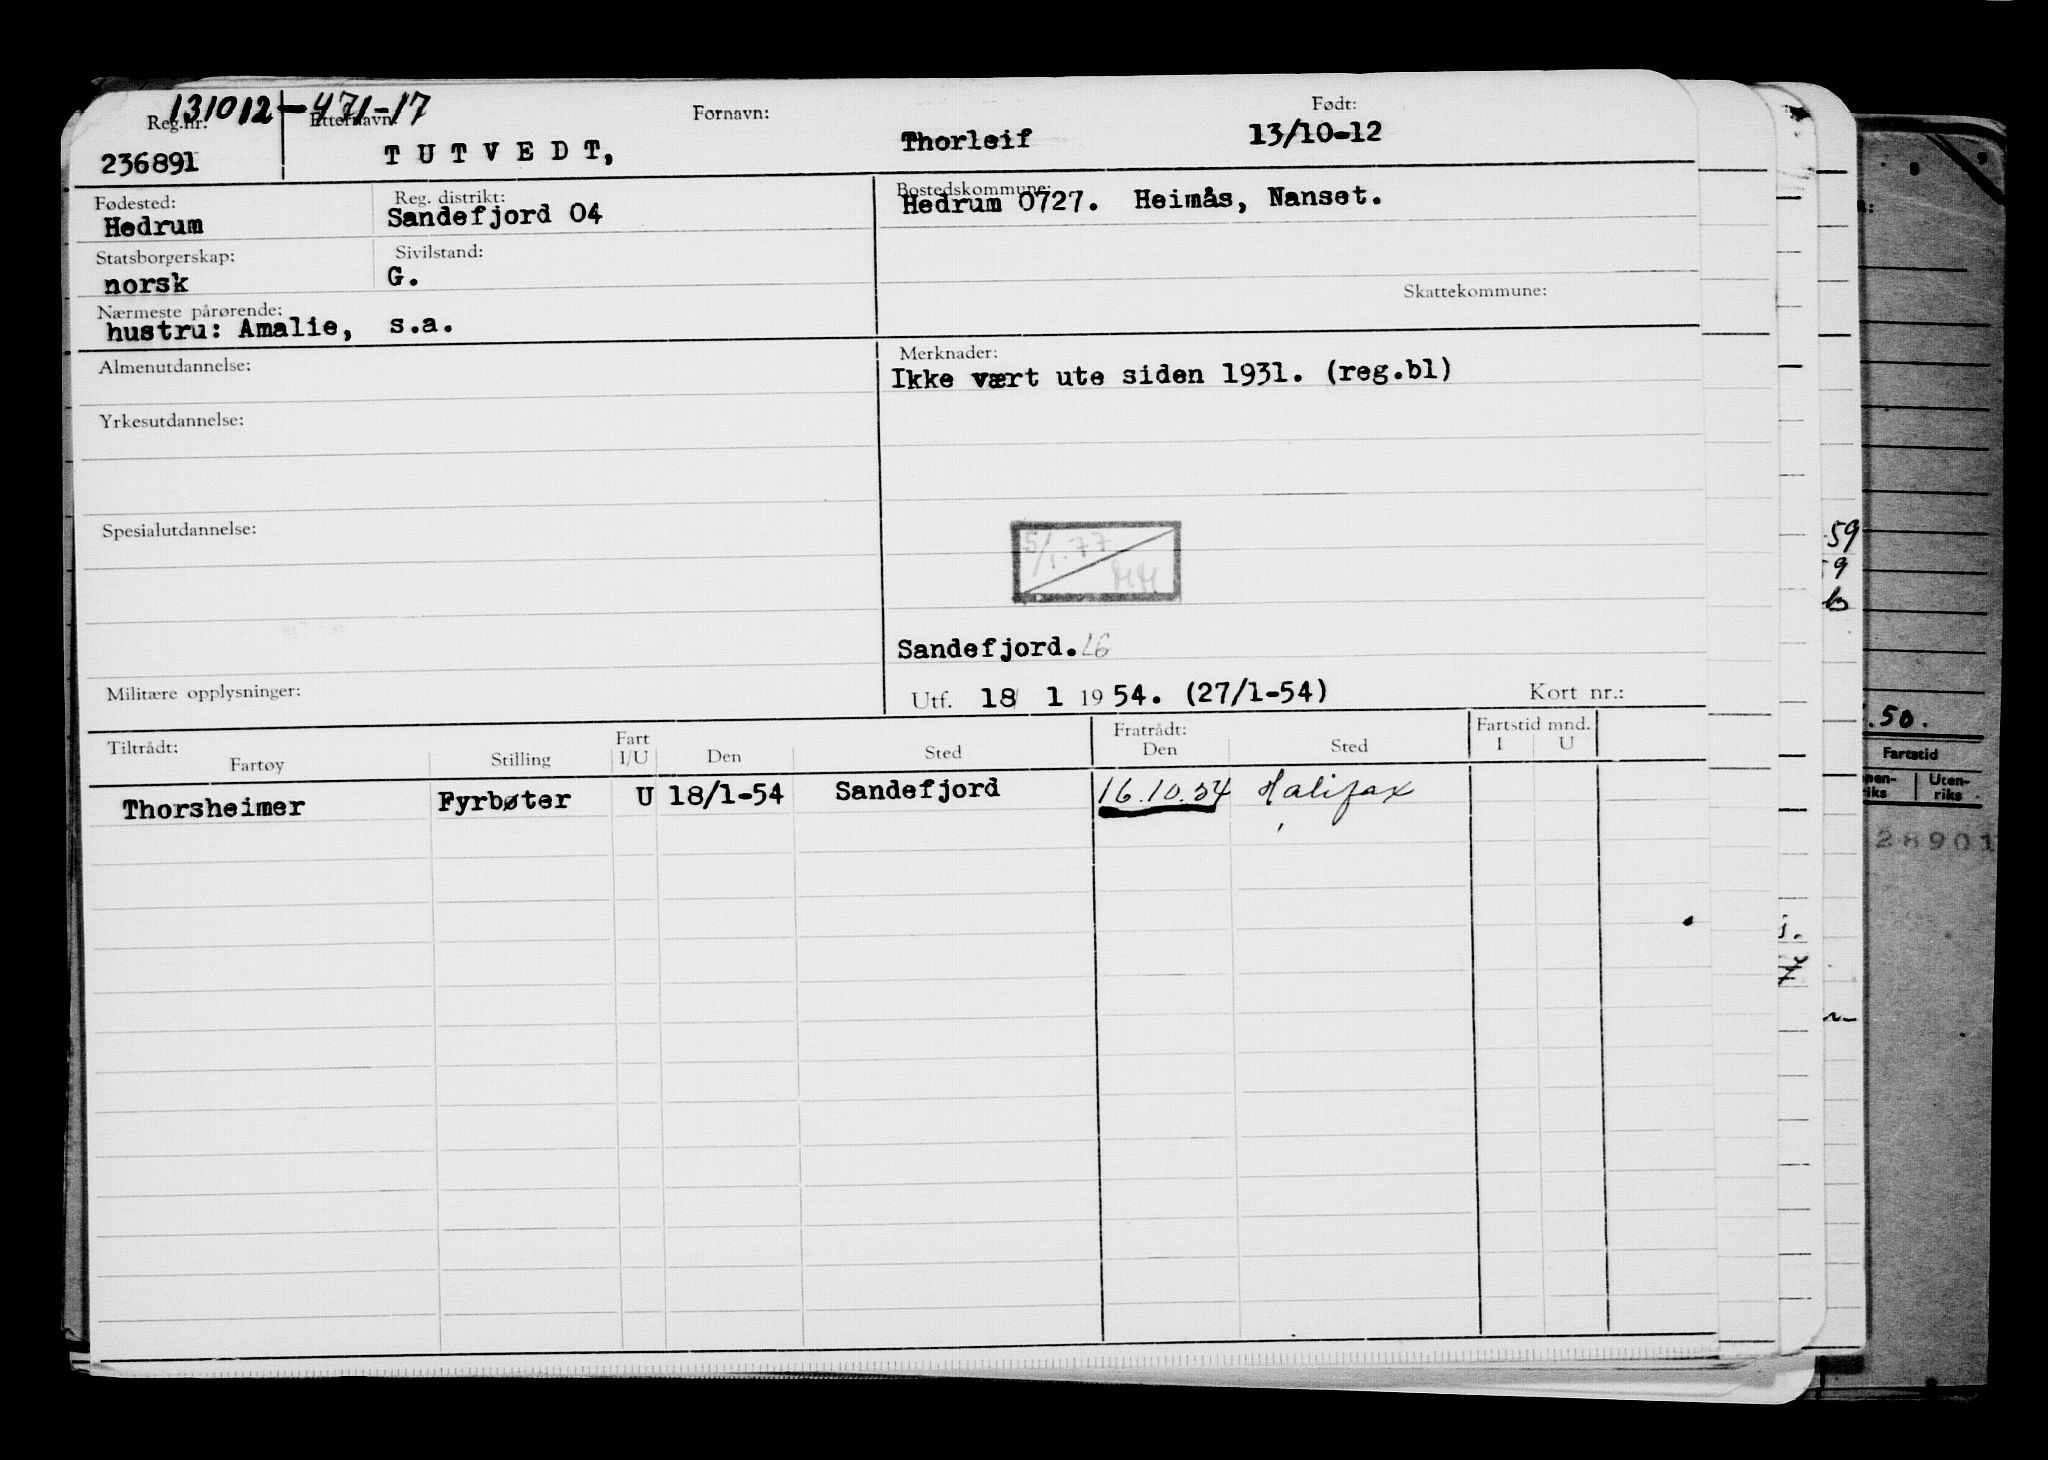 131012-471-17
Reg.nr. Etternavn: Fornavn: Født:
236891 TUTVEDT, Thorleif 13/10-12
Fødested: Reg. distrikt: Bostedskommune:
Hedrum Sandefjord 04 Hedrum 0727. Heimås, Nanset.
Statsborgerskap: Sivilstand:
norsk G.
Skattekommune:
Nærmeste pårørende:
hustru: Amalie, s.a.
Almenutdannelse: Merknader:
Ikke vært ute siden 1931. (reg.bl)
Yrkesutdannelse:
Spesialutdannelse:
5/1.77
Sandefjord.
Militære opplysninger: Utf. 18/ 1 1954. (27/1-54) Kort nr.:
Tiltrådt: Fratrådt: Fartstid mnd.
Fartøy Stilling Fart I/U Den Sted Den Sted I U
Thorsheimer Fyrbøter U 18/1-54 Sandefjord 16.10.54 Halifax
59
9
.50.
Fartstid
Uten-
riks
28901